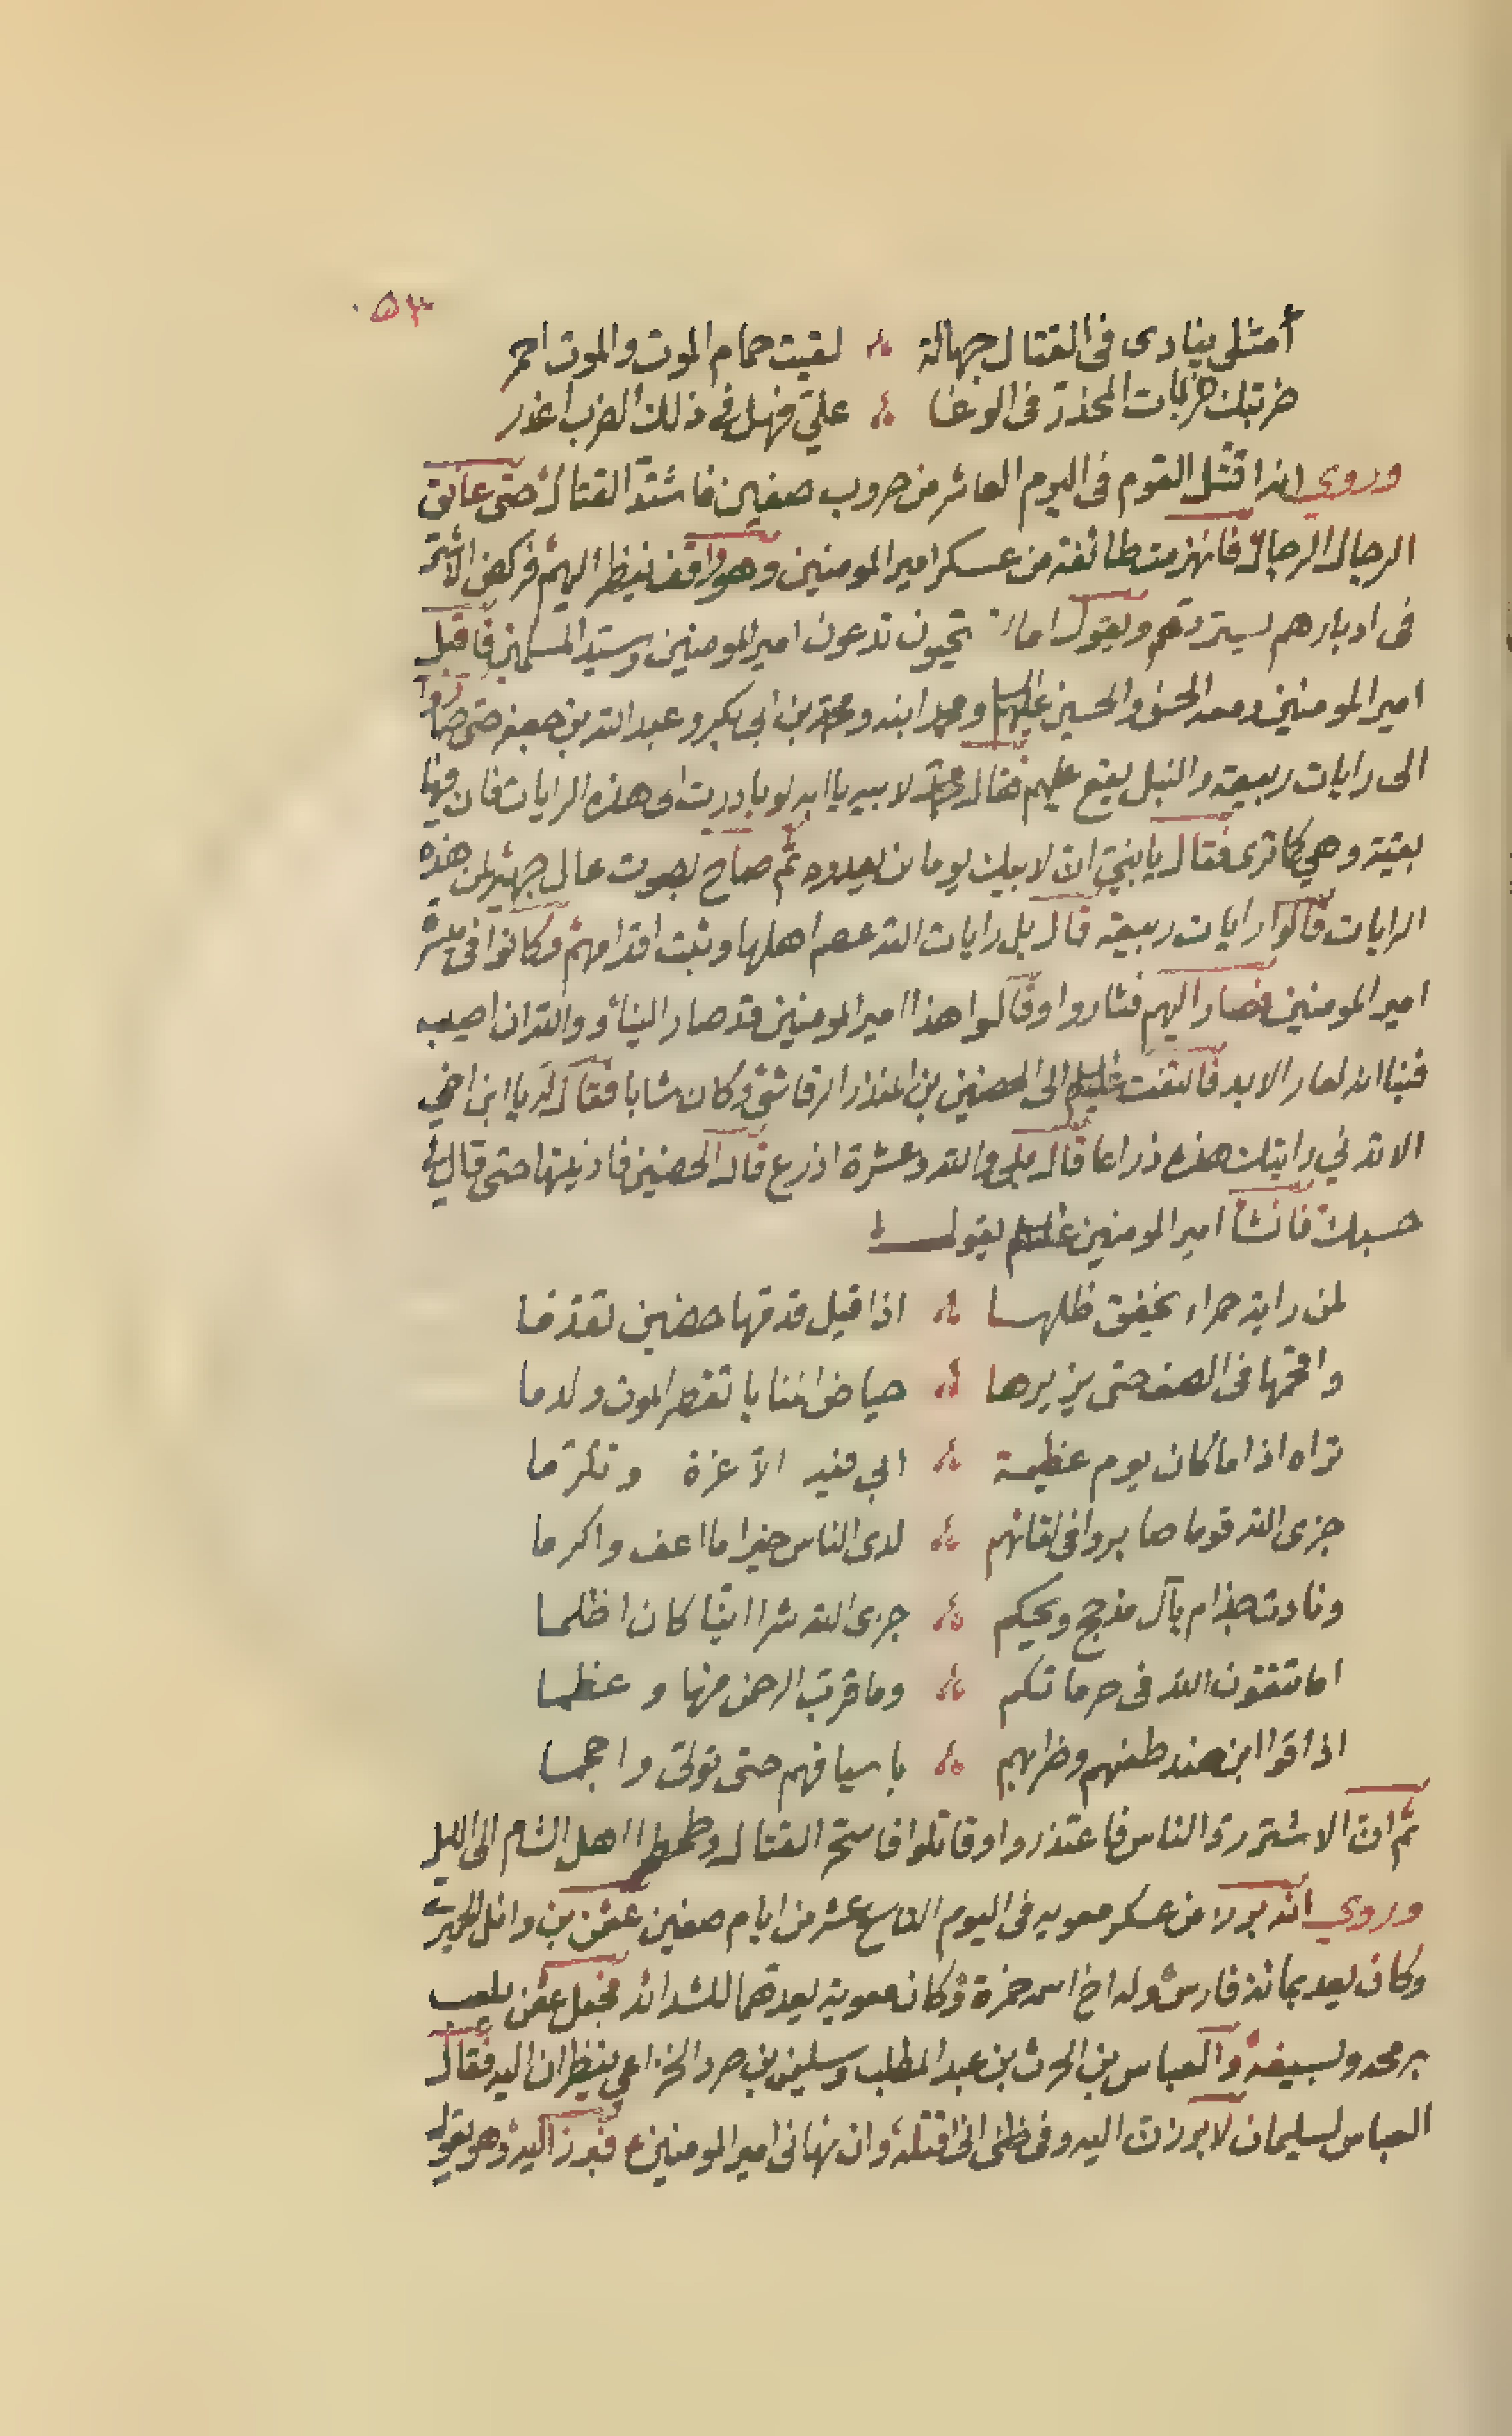 ٥٣
أمثلي ينادى فى القتال جهالة ؞ لقيت حمام الموت والموت احمر
ضربتك ضربات المحذر فى الوغا ؞ علي فهل فى ذلك الضرب اعذر
وروي انه اقتتل القوم فى اليوم العاشر من حروب صفين فاشتد القتال حتى عانق
الرجال الرجال فانهزمت طائفة من عسكر امير المومنين وهو واقف ينظر اليهم فركض الاشتر
فى ادبارهم يستردهم ويقول اما تستحيون تدعون امير المومنين وسيد المسلمين فاقبل
امير المومنين ومعه الحسن والحسين عليهم السلم ومحمد ابنه ومحمد بن ابى بكر وعبد الله بن جعفر حتى صاروا
الى رايات ربيعة والنبل يقع عليهم فقال محمد لابيه يا ابه لو بادرت الى هذه الرايات فان فيها
بقية وهي كما ترى فقال يا بني ان لابيك يوما لن يعدوه ثم صاح بصوت عال جهير لمن هذه
الرايات قالوا رايات ربيعة قال بل رايات الله عصم اهلها وثبت اقدامهم وكانوا فى ميسرة
امير المومنين فصار اليهم فثاروا وقالوا هذا امير المومنين قد صار الينا والله ان اصيب
فينا انه لعار الابد فالتفت عليه السلم الى الحصنين بن المنذر الرقاشي وكان شابا فقال له يا ابن اخي
الا تدني رايتك هذه ذراعا قال بلى والله وعشرة اذرع قال الحضين فادنيتها حتى قال لي
حسبك فانشأ امير المومنين عليه السلم يقول
لمن راية حمراء يخفق ظلها ؞ اذا قيل قدمها حضين تقدما
واقحمها فى الصف حتى يزيرها ؞ حياض المنايا تقطر الموت والدما
تراه اذا ما كان يوم عظيمة ؞ ابي فيه الا عزة وتكرما
جزى الله قوما صابروا فى لقائهم ؞ لدى الناس خيرا ما اعف واكرما
ونادت جذام يآل مذحج ويحكم ؞ جزى الله شرا اينا كان اظلما
اما تتقون الله فى حرماتكم ؞ وما قرب الرحمن منها وعظما
اذاقوا ابن هند طعنهم وضرابهم ؞ باسيافهم حتى تولى واحجما
ثم ان الاشتر رد الناس فاعتذروا وقاتلوا فاستحر القتال اهل الشام الى الليل
وروي انه برز من عسكر معويه فى اليوم التاسع عشر من ايام صفين عثمن بن وائل الحميري
وكان يعد بمائة فارس وله اخ اسمه حمزة وكان معوية يعدهما للشدائد فجعل عثمن يلعب
برمحه وبسيفه والعباس بن الحرث بن عبد المطلب وسليمن بن صرد الخزاعي ينظران اليه فقال
العباس لسليمان لابرزن اليه وفى ظني انى اقتله وان نهانى امير المومنين ع فبرز اليه وهو يقول